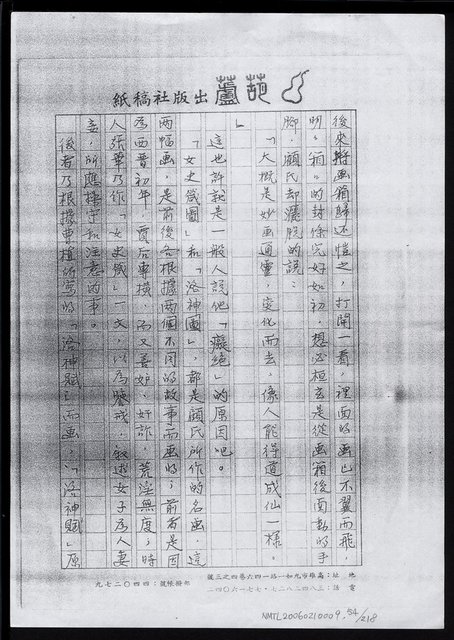 葫蘆出版社稿紙
後來將画箱歸还愷之，打開一看，裡面的画已不翼而飛，
明，箱，的封條完好如初，想必桓玄是從画箱後面動的手
腳，顧氏却灑脫的說：
「大概是妙画通靈，变化而去，像人能得道成仙一樣。
」
這也許就是一般人說他「癡絕」的原因吧。
「女史箴圖」和「洛神圖」，都是顧氏所作的名画，這
兩幅画，是前後各根據兩個不同的故事而画的，前者是因
為西晉初年，賈后專橫，而又善妒、奸詐，荒淫無度，時
人張華乃作「女史箴」一文，以為鑒戒，叙述女子為人妻
妾，所應操守和注意的事。
後者乃根據曹植所寫的「洛神賦」而画，「洛神賦」原
地址：高雄市九如一路一四六巷四之三號
電話：三八四二八二七・七七一六〇四二
郵撥帳號：四四〇二七九
NMTL20060210009, 54/218